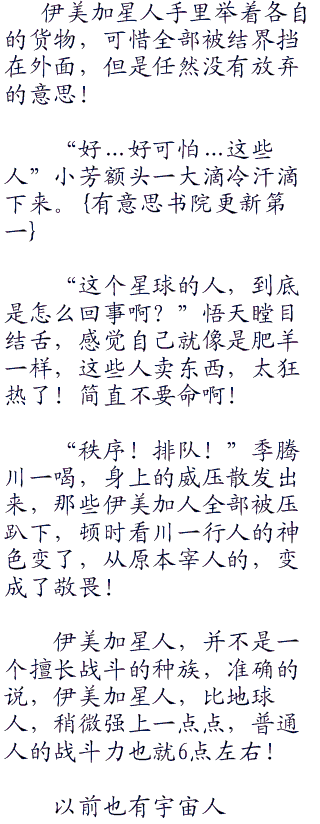 伊美加星人手里举着各自
的货物，可惜全部被结界挡
在外面，但是任然没有放弃
的意思！
“好…好可怕…这些
人”小芳额头一大滴冷汗滴
下来。{有意思书院更新第
一}
“这个星球的人，到底
是怎么回事啊？”悟天瞠目
结舌，感觉自己就像是肥羊
一样，这些人卖东西，太狂
热了！简直不要命啊！
“秩序！排队！”季腾
川一喝，身上的威压散发出
来，那些伊美加人全部被压
趴下，顿时看川一行人的神
色变了，从原本宰人的，变
成了敬畏！
伊美加星人，并不是一
个擅长战斗的种族，准确的
说，伊美加星人，比地球
人，稍微强上一点点，普通
人的战斗力也就6点左右！
以前也有宇宙人